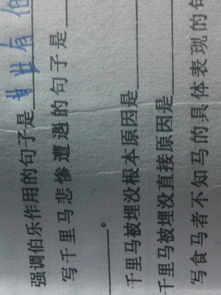 强调伯乐作用的句子是世有伯
写千里马悲惨遭遇的句子是
。
千里马被埋没根本原因是
千里马被埋没直接原因是
写食马者不知马的具体表现的